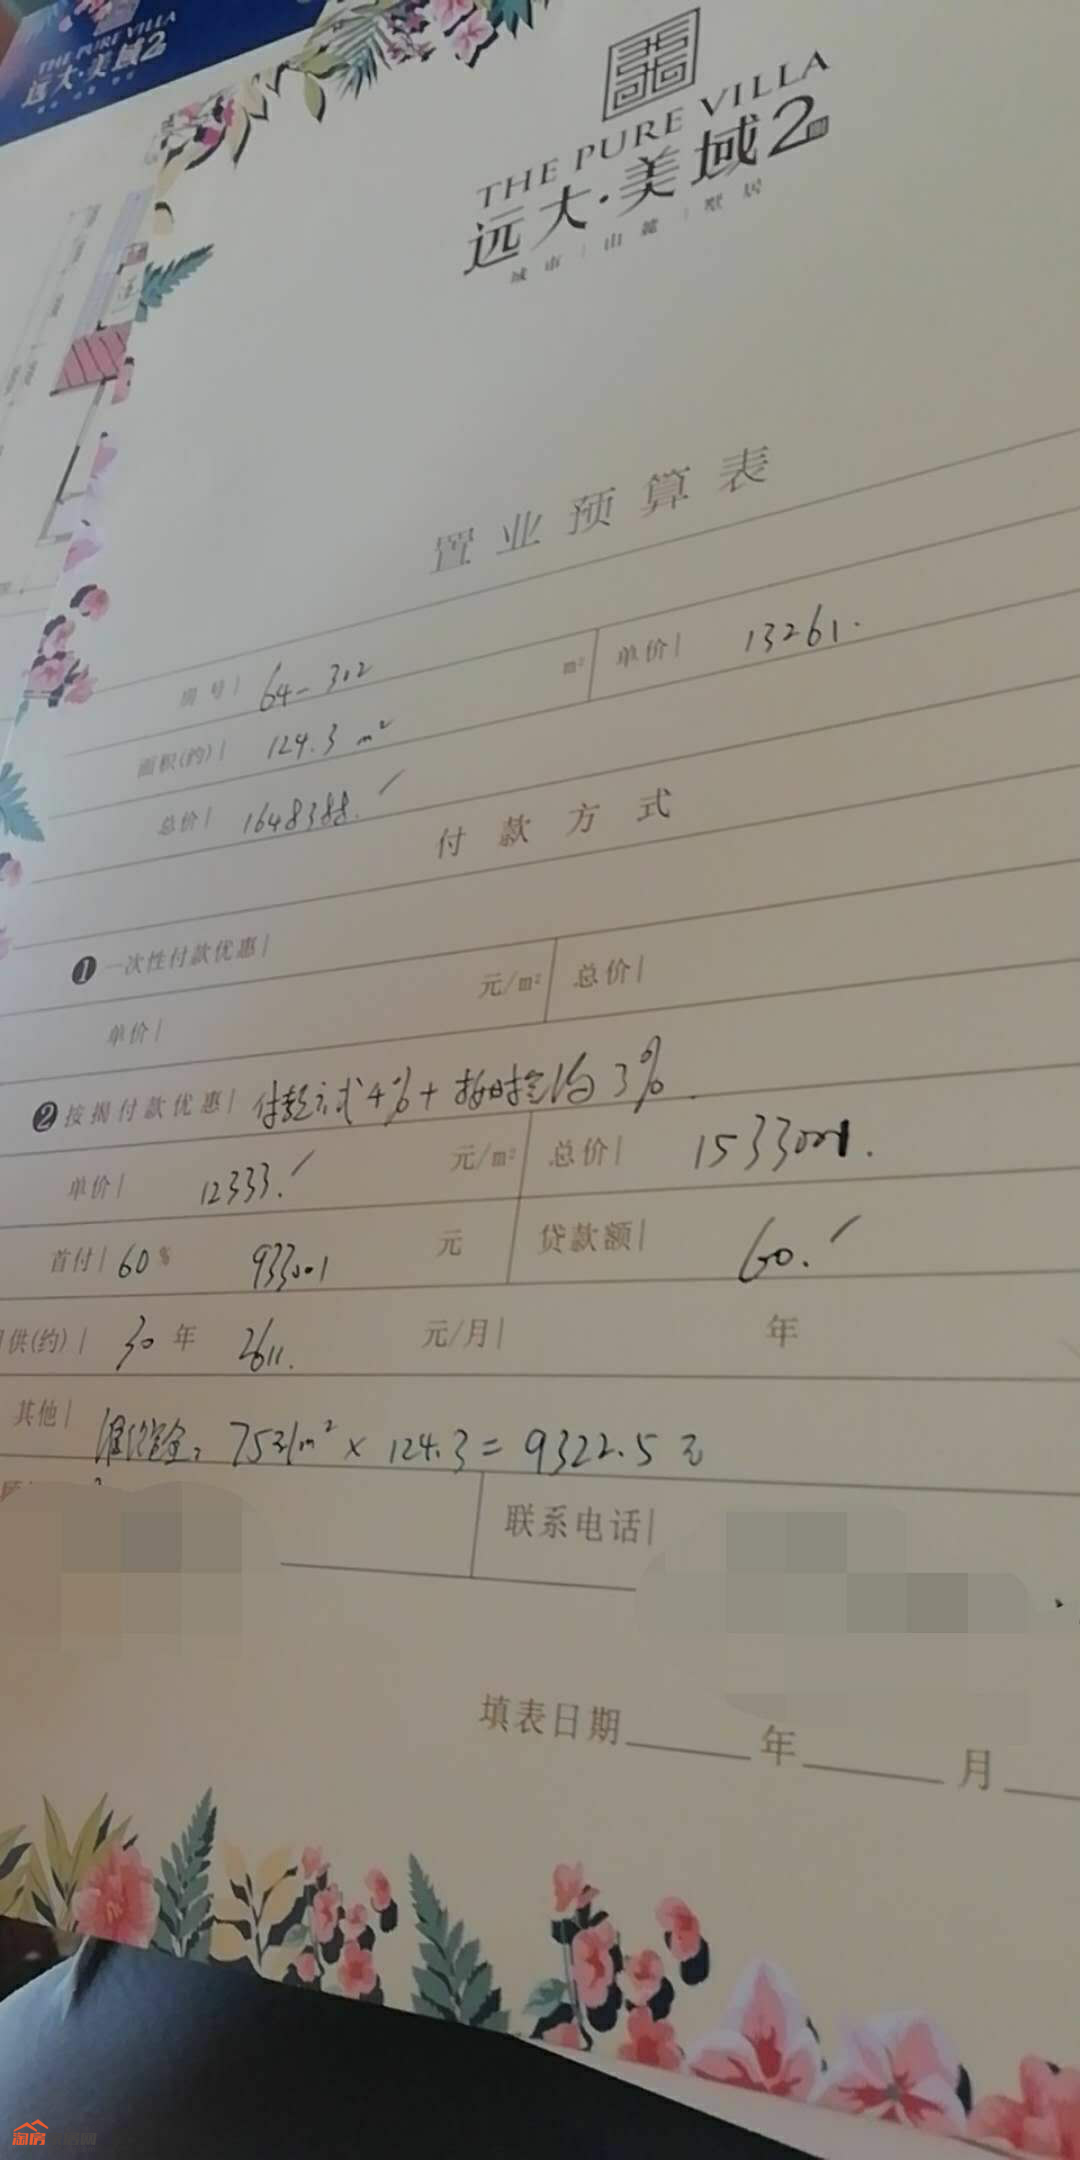 THE PURE VILLA
远大·美域2
THE PURE VILLA
远大·美域2期
城市|山麓|墅居
置业预算表
房号| 64-302 m² 单价| 13261.
面积(约)| 124.3 m²
总价| 1648388.
付款方式
❶一次性付款优惠|
单价| 元/m² 总价|
❷按揭付款优惠| 付款方式4%+按时签约3%.
单价| 12333. 元/m² 总价| 1533001.
首付| 60% 933001 元 贷款额| 60.
供(约)| 30年 2611. 元/月| 年
其他| 维修金: 75元/m² × 124.3 = 9322.5元
联系电话|
填表日期 年 月
淘房